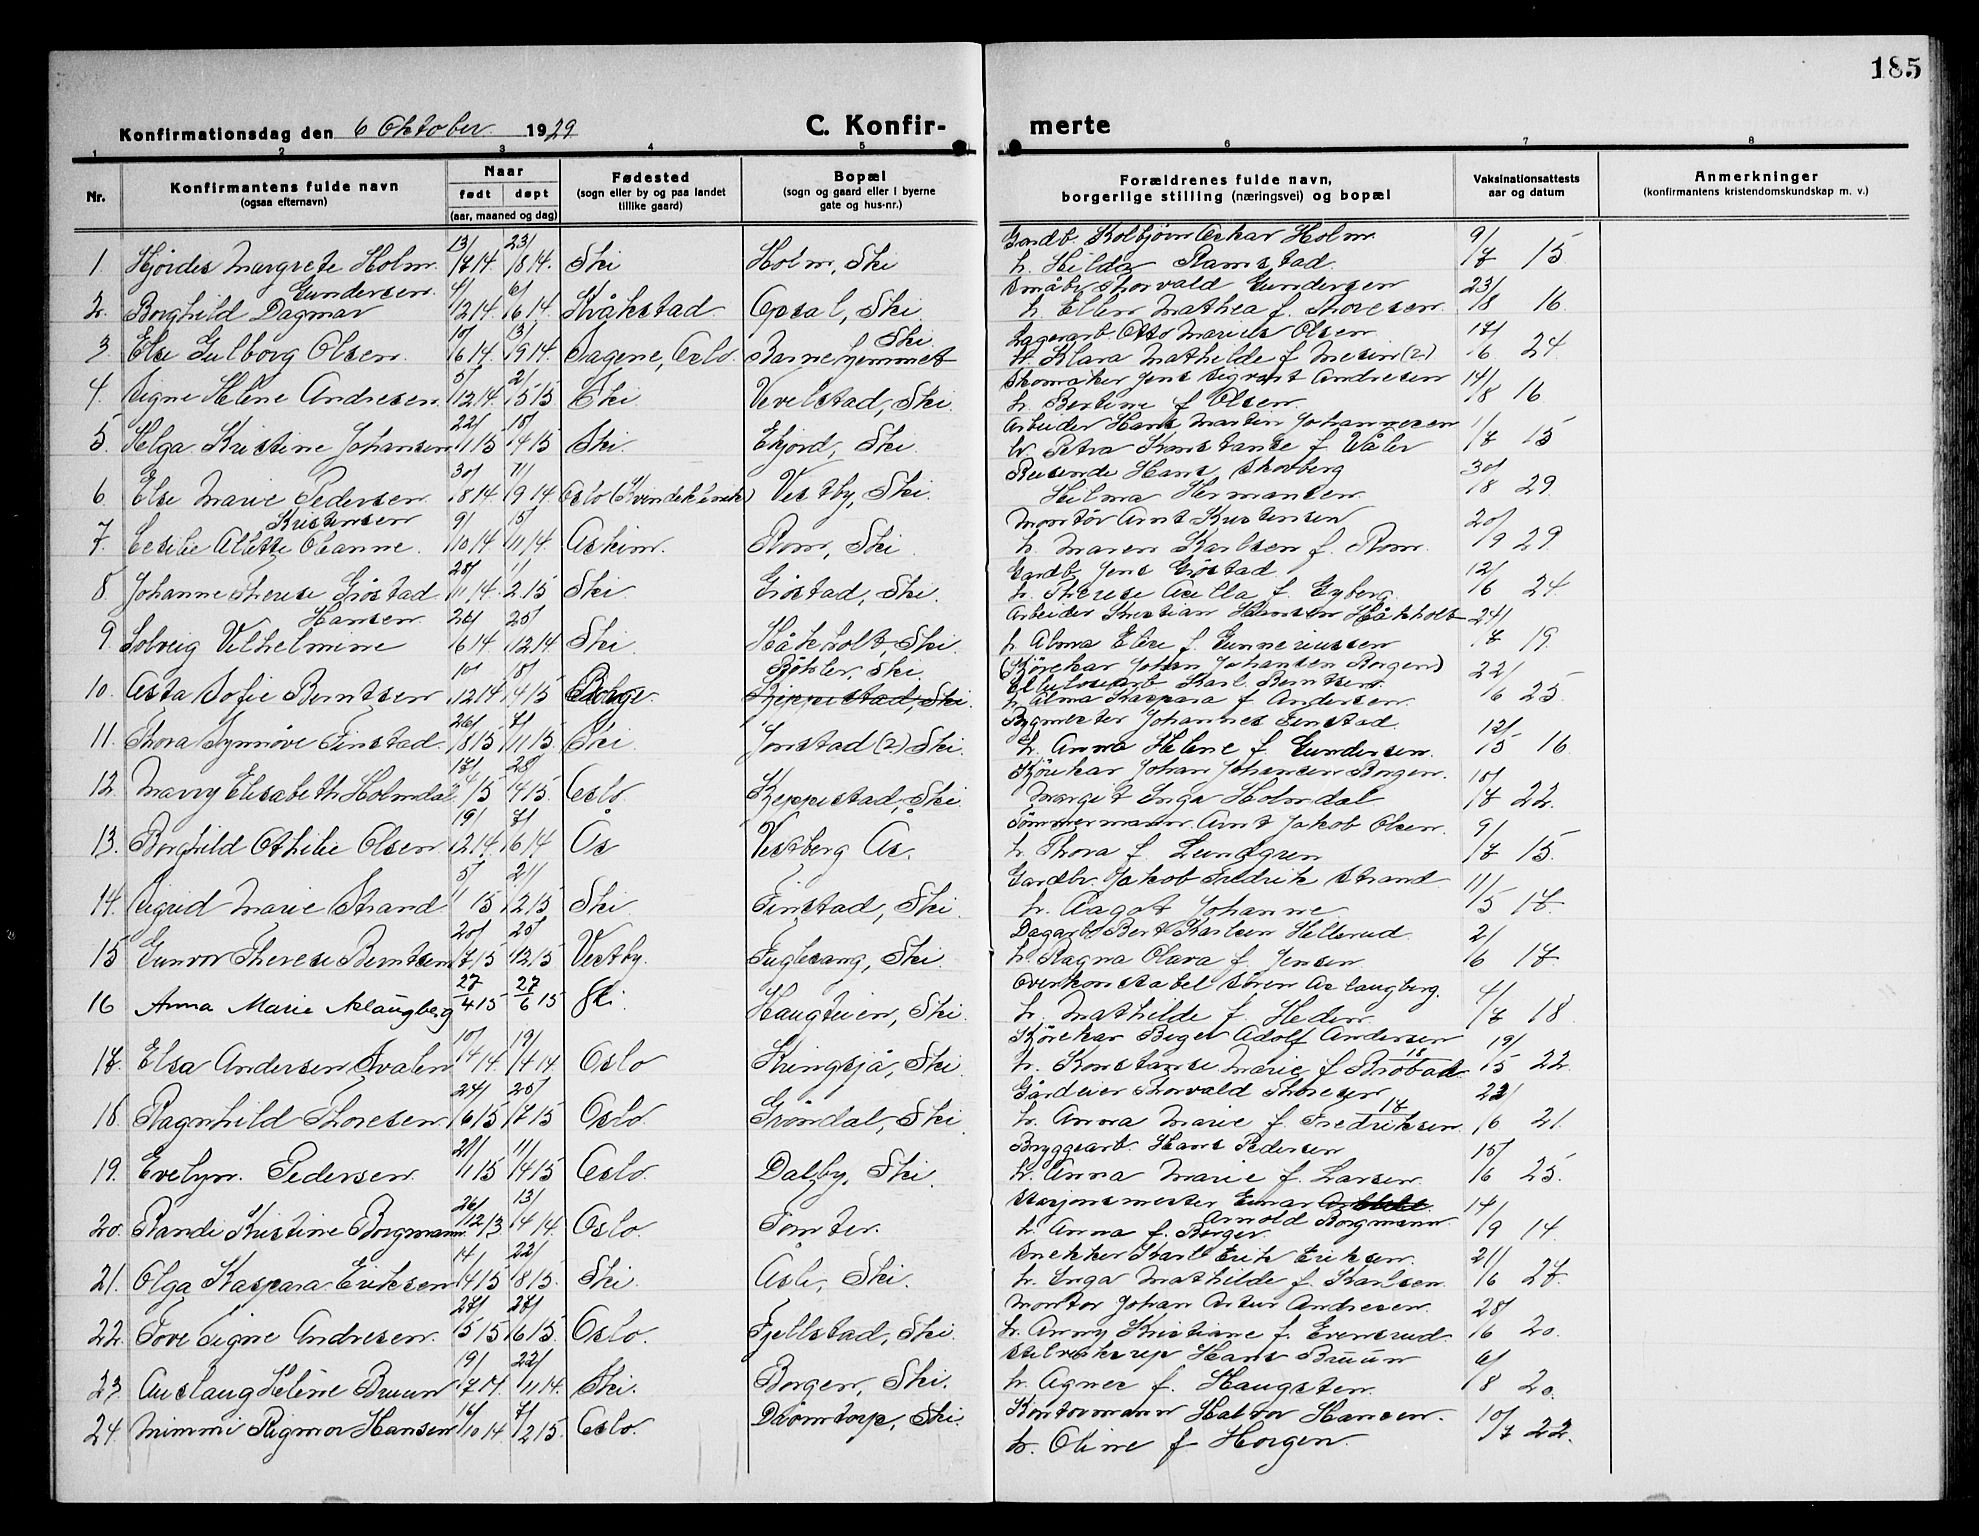 185
Konfirmationsdag den 6 Oktober 1929
C. Konfir-
merte
1 2 3 4 5 6 7 8
Nr.
Konfirmantens fulde navn
(ogsaa efternavn)
Naar
født døpt
(aar, maaned og dag)
Fødested
(sogn eller by og paa landet
tillike gaard)
Bopæl
(sogn og gaard eller i byerne
gate og hus-nr.)
Forældrenes fulde navn,
borgerlige stilling (næringsvei) og bopæl
Vaksinationsattests
aar og datum
Anmerkninger
(konfirmantens kristendomskundskap m. v.)
1. Hjørdis Margrete Holm. 13/7 14. 23/8 14. Ski Holm, Ski
Gardb. Kolbjørn Oskar Holm.
h. Hilda Ramstad. 9/7 15
Gundersen.
2. Borghild Dagmar 4/12 14. 6/6 14. Kråkstad Opsal, Ski
Småbr. Thorvald Gundersen
h. Ellen Mathea f. Thoresen. 23/8 16.
3. Else Gulborg Olsen. 10/6 14. 13/9 14. Sagene, Oslo. Barnehjemmet Ski.
Lagerarb. Otto Marius Olsen
h. Klara Mathilde f. 17/6 24.
4. Signe Helene Andresen. 5/12 14. 2/5 15 Ski. Vevelstad, Ski.
Skomaker Jens Sigvart Andresen
h. Bertine f Olsen. 14/8 16.
5. Helga Kristine Johansen 22/1 15 18/4 15 Ski. Ekjord, Ski.
Arbeider Hans Martin Johannesen
h. Petra Konstanse f. Våler 1/7 15
6. Else Marie Pedersen. 30/8 14. 11/9 14. Oslo (Kvindeklinik) Vestby, Ski.
Reisende Hans Skovberg
Hilma Hermansen. 30/8 29.
Kristensen
7. Cesilie Alette Oleanne. 9/10 14. 15/11 14. Askim. Rom, Ski.
Montør Arnt Kristensen
h. Maren Karlsen f. Rom. 20/9 29
8. Johanne Therese Grøstad 28/11 14. 1/2 15 Ski Grøstad, Ski.
Gardb. Jens Grøstad.
h. Therese f. Nyberg. 12/6 24.
Hansen.
9. Solveig Vilhelmine 26/6 14. 25/12 14. Ski. Håkholt, Ski.
Arbeider Kristian Hansen Håkholt
h. Alma Elise f. Gunneriussen 24/7 19.
10. Asta Sofie Berntsen 10/12 14 18/4 15 Bolge. Røhler, Ski.
Keppestad, Ski.
(Kjørekar Johan Johansen Borgen)
Cellulosearb Karl Berntsen.
h. Alma Kaspara f Andersen. 22/6 25.
11. Thora Synnøve Finstad. 26/8 15 7/11 15. Ski. Jonstad (2) Ski.
Bygmester Johannes Finstad.
h. Anna Helene f. Gundersen. 12/5 16.
12. Marry Elisabeth Holmdal 17/ 15 28/4 15. Oslo Keppestad, Ski.
Kjørekar Johan Johansen Borgen.
Margit Inga Holmdal 10/7 22.
13. Borghild Othilie Olsen. 19/2 14. 7/6 14. Ås Vestberg Ås.
Tømmermann. Arnt Jakob Olsen.
h. Thora f. Lundgren 9/7 15.
14. Sigrid Marie Strand. 5/1 15 21/2 15 Ski Finstad, Ski.
Gardbr. Jakob Fredrik Strand
h. Aagot Johanne 11/5 17.
15 Gunvor Therese Berntsen 20/7 15 25/12 15. Vestby. Fuglesang, Ski.
Dagarb. Bert Karlsen Hellerud.
h. Ragna Olava f. Jensen 2/6 17
16 Anna Marie Aslaugberg 27/4 15 27/6 15 Ski. Haugteien, Ski.
Overkonstabel Søren Aslaugberg.
h. Mathilde f. Heden. 4/7 18.
17. Elsa Andersen Svalen 10/4 14. 19/4 14 Oslo Kringsjå, Ski.
Kjørekar Birger Adolf Andersen
h. Konstanse Marie f. Bråbæk 18 19/5 22.
18. Ragnhild Thoresen. 24/6 15 25/7 15 Oslo. Grøndal, Ski
Gårdeier Thorvald Thoresen
h. Anna Marie f. Fredriksen. 17 22/6 21.
19. Evelyn. Pedersen. 21/1 15 11/4 15 Oslo. Dalby, Ski.
Bryggearb. Hans Pedersen
h. Anna Marie f. Larsen. 15/6 25.
20. Randi Kristine Borgmann 26/12 13 13/4 14. Oslo. Tomter.
Stasjonsmester Einar
Arnold Borgmann.
h. Anna f. Berger. 14/9 14.
21. Olga Kaspara Eriksen 14/4 15 22/8 15. Ski. Åsli, Ski.
Snekker Karl Erik Eriksen.
h. Inga Mathilde f. Karlsen. 21/6 27.
22. Tove Signe Andresen. 27/5 15 27/6 15. Oslo. Fjellstad, Ski.
Montør Johan Artur Andresen.
h. Anny Kristiane f. Evensrud. 28/6 20.
23. Auslaug Helene Bruun 19/7 14. 22/11 14. Ski. Borgen, Ski.
Hans Bruun
h. Agnes f. Haugsten. 6/8 20.
24. Mimmi Rigmor Hansen 16/10 14 7/2 15. Oslo. Drømtorp, Ski.
Kontormann Halvor Hansen.
h. Oline f Horgen. 10/7 22.